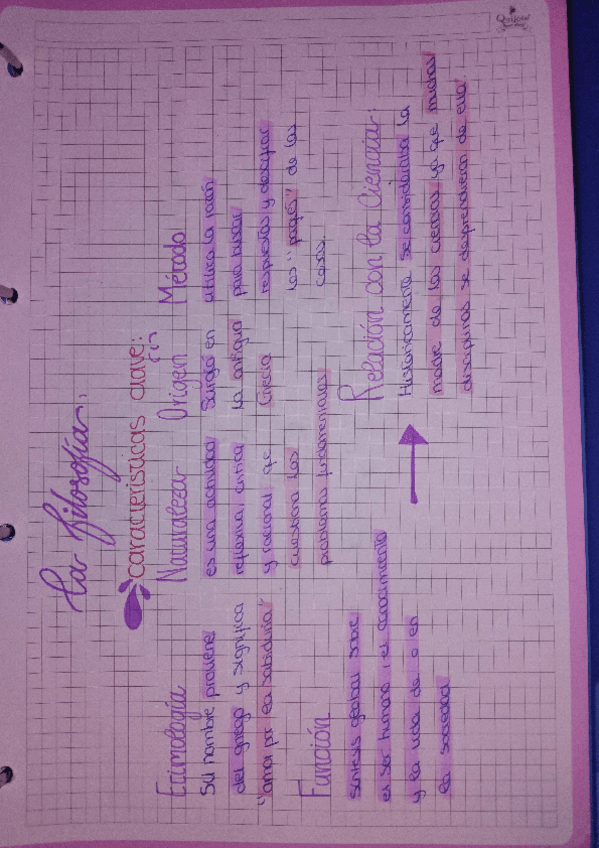 La filosofía:
características clave:
Etimología
Su nombre proviene
del griego y significa
"amor por la sabiduría"
Naturaleza
es una actividad
reflexiva, crítica
y racional que
cuestiona los
problemas fundamentales
Origen
Surgió en
la antigua
Grecia
Método
utiliza la razón
para buscar
respuestas y
los "   " de las
cosas.
Función
síntesis global sobre
el ser humano, el conocimiento
y la vida de o en
la sociedad
Relación con la Ciencia:
Históricamente se consideraba la
madre de las ciencias ya que muchas
disciplinas se desprendieron de ella.